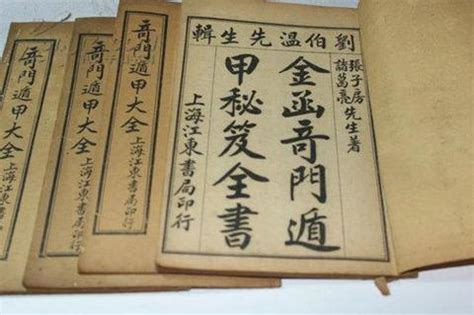 劉伯温先生輯
張子房
諸葛亮
先生著
金函竒門遁
甲秘笈全書
上海江東書局印行
竒門遁甲大全
上海江東書局印行
竒門遁甲大全
上海江東書局印行
竒門遁甲大全